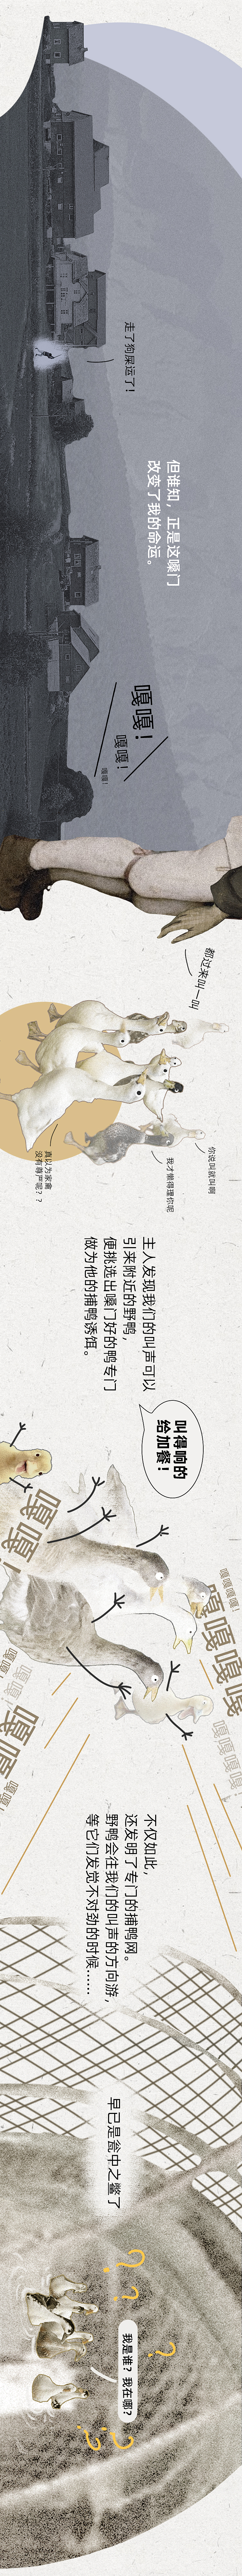 走了狗屎运了！
但谁知，正是这嗓门
改变了我的命运。
嘎嘎！
嘎嘎！
嘎嘎！
都过来叫一叫
你说叫就叫啊
我才懒得理你呢
真以为家禽
没有尊严呢？？
主人发现我们的叫声可以
引来附近的野鸭，
便挑选出嗓门好的鸭专门
做为他的捕鸭诱饵。
叫得响的
给加餐！
嘎嘎嘎嘎！
嘎嘎嘎
嘎嘎嘎嘎！
嘎嘎！
嘎嘎
不仅如此，
还发明了专门的捕鸭网。
野鸭会往我们的叫声的方向游，
等它们发觉不对劲的时候……
早已是瓮中之鳖了
？？？
我是谁？我在哪？
？？